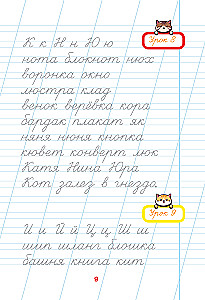 К к Н н Ю ю
Урок 8
нота блокнот нюх
воронка окно
люстра клад
венок верёвка кора
бардак плакат як
няня нюня кнопка
кювет конверт люк
Катя Нина Юра
Кот залез в гнездо.
Урок 9
И и Й й Ц ц Ш ш
шип шланг блошка
башня книга кит
9